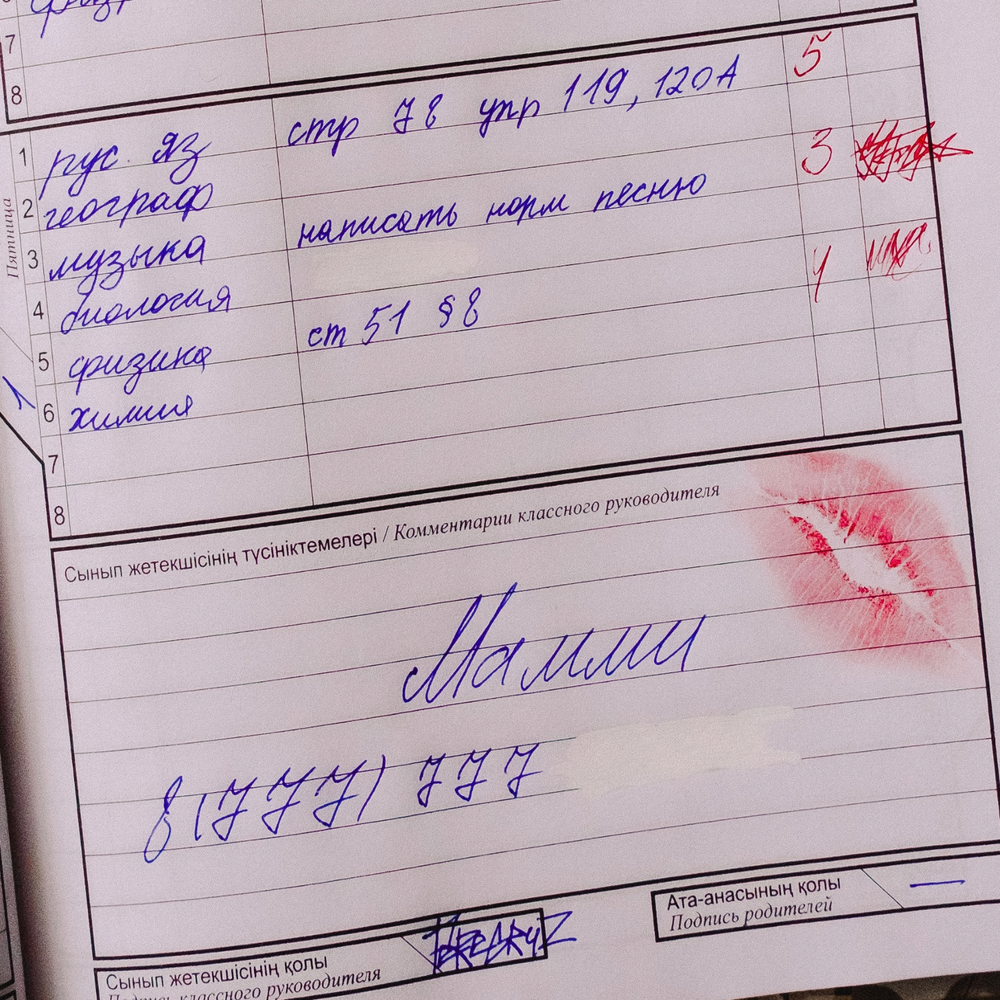 7
8
Пятница
1 рус. яз стр 78 упр 119, 120А 5
2 географ 3
3 музыка написать норм песню
4 биология 4
5 физика ст 51 §8
6 химия
7
8
1
Сынып жетекшісінің түсініктемелері / Комментарии классного руководителя
Мамми
8(777) 777
Ата-анасының қолы
Подпись родителей
Сынып жетекшісінің қолы
Подпись классного руководителя